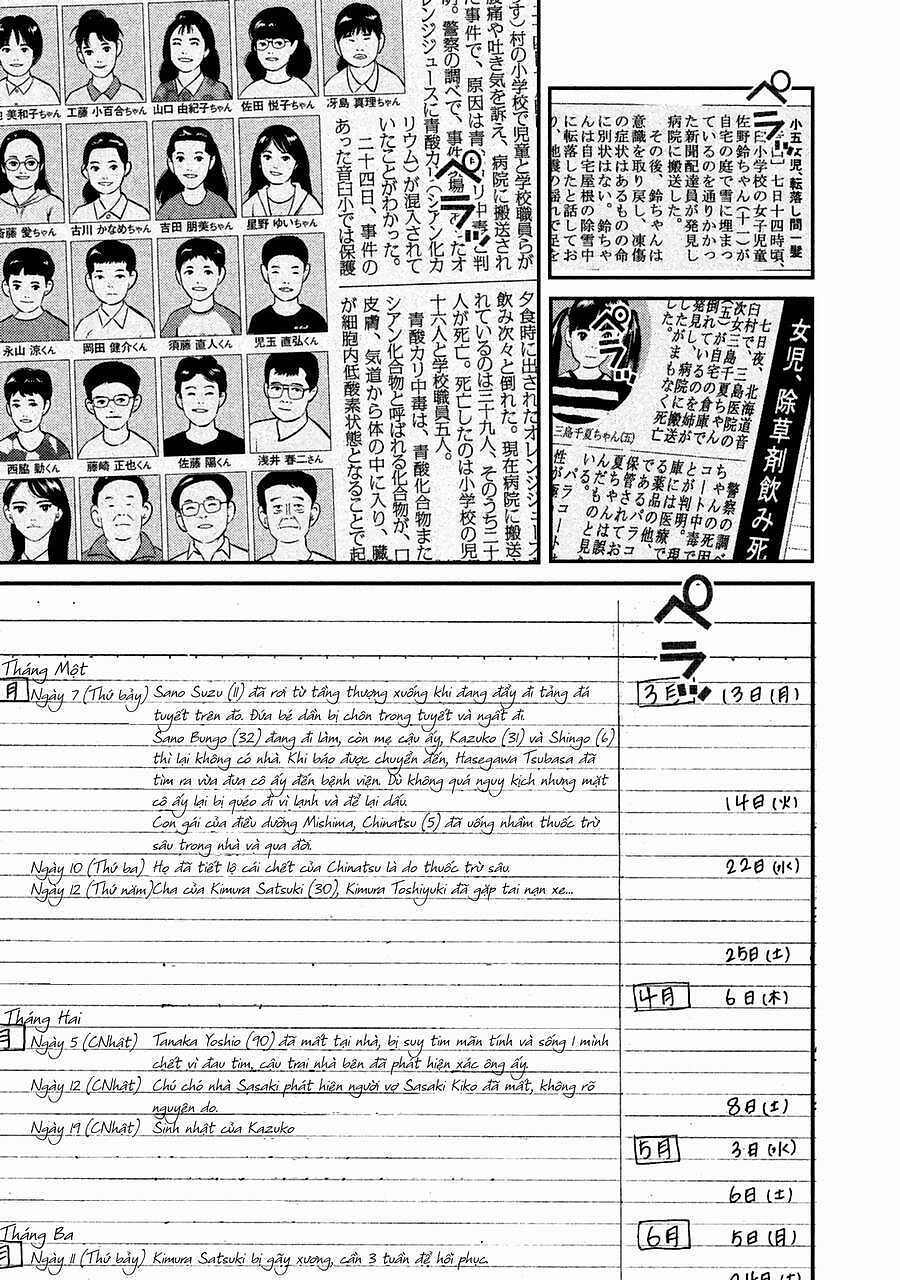 ペラッ
小五女児、転落し間一髪
七日十四時頃、
臼小学校の女子児童
佐野鈴ちゃん(十一)が
自宅の庭で雪に埋まっ
ているのを通りかかっ
た新聞配達員が発見し
病院に搬送した。
その後、鈴ちゃんは
意識を取り戻し、凍傷
の症状はあるものの命
に別状はない。鈴ちゃ
んは自宅屋根の除雪中
に転落したと話してお
ペラッ
女児、除草剤飲み死
七日夜、北海道音
臼村で、三島医院の
次女三島千夏ちゃん
(五)が自宅の倉庫で
倒れているのを姉が
発見し、病院に搬送
したがまもなく死亡
した。
三島千夏ちゃん(五)
警察の調べ
ちゃんの死因
コート中毒で
とが判明。現
庫には医療で
る薬品の他、
であるパラコ
保管されてお
夏ちゃんは誤
んだものと見
いる。
パラコート
ペラッ
す)村の小学校で児童と学校職員らが
腹痛や吐き気を訴え、病院に搬送され
た事件で、原因は青酸カリ中毒と判
明。警察の調べで、事件現場にあったオ
レンジジュースに青酸カリ(シアン化カ
リウム)が混入されて
いたことがわかった。
二十四日、事件の
あった音臼小では保護
夕食時に出されたオレンジジュース
飲み次々と倒れた。現在病院に搬送
れているのは三十九人、そのうち二十
人が死亡。死亡したのは小学校の児
十六人と学校職員五人。
青酸カリ中毒は、青酸化合物また
シアン化合物と呼ばれる化合物が、口
皮膚、気道から体の中に入り、臓
が細胞内低酸素状態となることで起
美和子ちゃん
工藤 小百合ちゃん
山口 由紀子ちゃん
佐田 悦子ちゃん
冴島 真理ちゃん
斎藤 愛ちゃん
古川 かなめちゃん
吉田 朋美ちゃん
星野 ゆいちゃん
永山 涼くん
岡田 健介くん
須藤 直人くん
児玉 直弘くん
西脇 勤くん
藤崎 正也くん
佐藤 陽くん
浅井 春二さん
ペラッ
Tháng Một
月 Ngày 7 (Thứ bảy) Sano Suzu (11) đã rơi từ tầng thượng xuống khi đang đẩy đi tảng đá
tuyết trên đó. Đứa bé dần bị chôn trong tuyết và ngất đi.
Sano Bungo (32) đang đi làm, còn mẹ cậu ấy, Kazuko (31) và Shingo (6)
thì lại không có nhà. Khi báo được chuyển đến, Hasegawa Tsubasa đã
tìm ra vừa đưa cô ấy đến bệnh viện. Dù không quá nguy kịch nhưng mặt
cô ấy lại bị quéo đi vì lạnh và để lại dấu.
Con gái của điều dưỡng Mishima, Chinatsu (5) đã uống nhầm thuốc trừ
sâu trong nhà và qua đời.
Ngày 10 (Thứ ba) Họ đã tiết lộ cái chết của Chinatsu là do thuốc trừ sâu
Ngày 12 (Thứ năm) Cha của Kimura Satsuki (30), Kimura Toshiyuki đã gặp tai nạn xe...
Tháng Hai
月 Ngày 5 (CNhật) Tanaka Yoshio (90) đã mất tại nhà, bị suy tim mãn tính và sống 1 mình
chết vì đau tim, cậu trai nhà bên đã phát hiện xác ông ấy.
Ngày 12 (CNhật) Chú chó nhà Sasaki phát hiện người vợ Sasaki Kiko đã mất, không rõ
nguyên do.
Ngày 19 (CNhật) Sinh nhật của Kazuko
Tháng Ba
月 Ngày 11 (Thứ bảy) Kimura Satsuki bị gãy xương, cần 3 tuần để hồi phục.
3月 13日(月)
14日(火)
22日(水)
25日(土)
4月 6日(木)
8日(土)
5月 3日(水)
6日(土)
6月 5日(月)